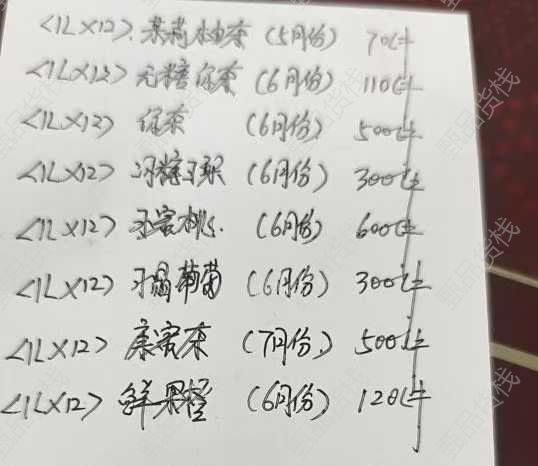 <1L×12>.茉莉柚茶(5月份) 70件
<1L×12>无糖绿茶(6月份) 110件
<1L×12>绿茶(6月份) 500件
<1L×12>冰糖习梨(6月份) 300件
<1L×12>水密桃.(6月份) 600件
<1L×12>习晶葡萄(6月份) 300件
<1L×12>茉密茶(7月份) 500件
<1L×12>鲜果橙(6月份) 120件